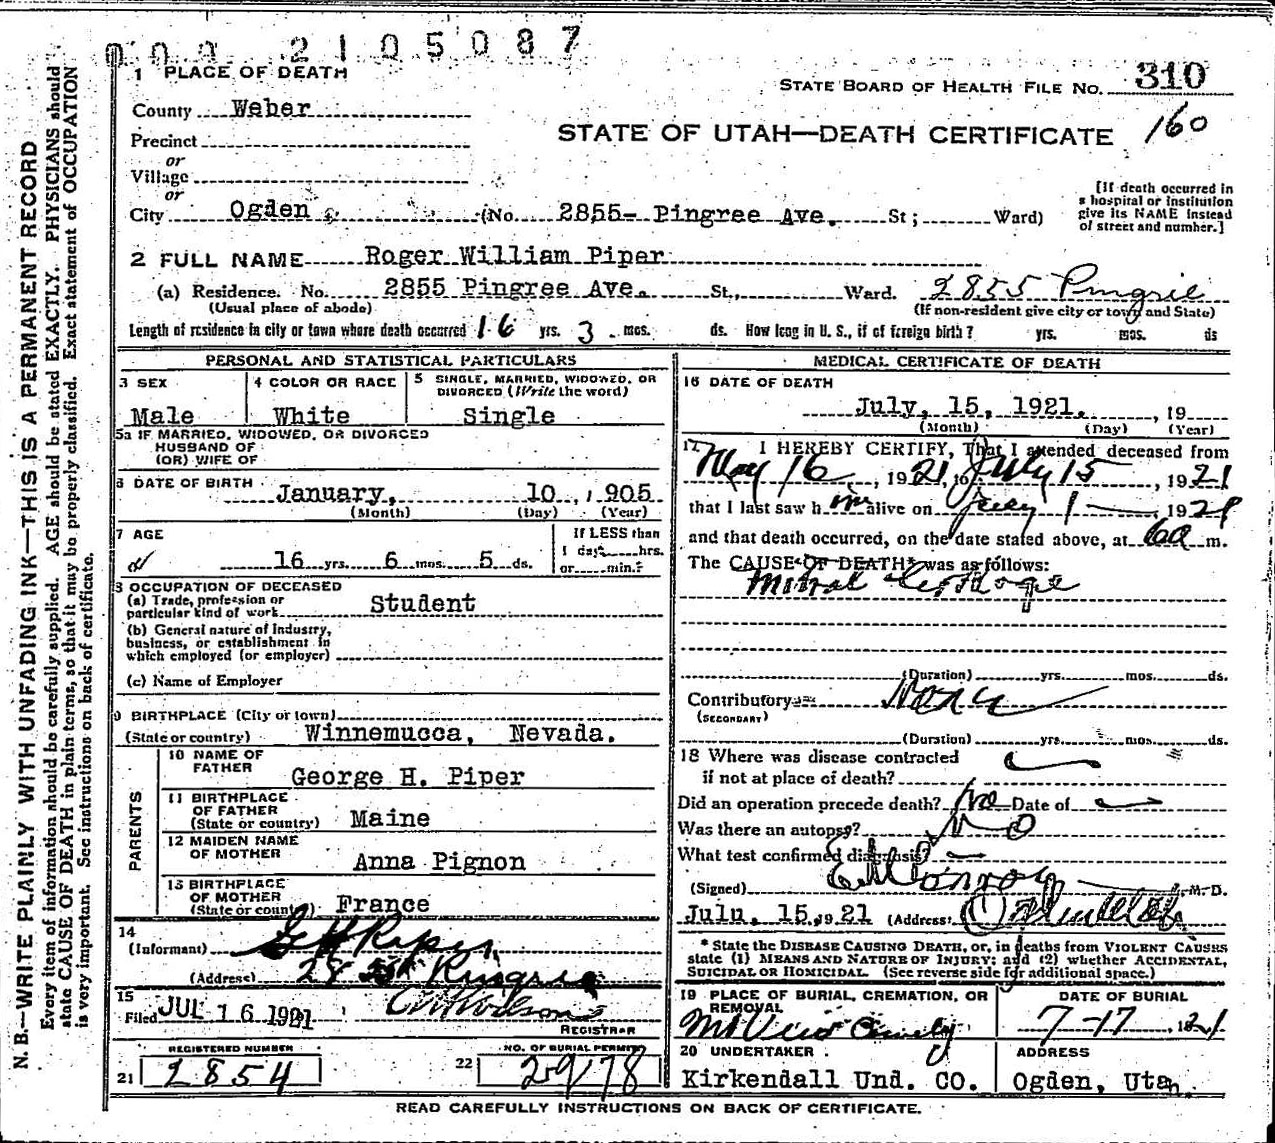 000 2105087
1 PLACE OF DEATH
STATE BOARD OF HEALTH FILE No. 310
County Weber
160
STATE OF UTAH—DEATH CERTIFICATE
Precinct
or
Village
or
City Ogden (No. 2855- Pingree Ave. St; Ward)
[If death occurred in a hospital or institution give its NAME instead of street and number.]
2 FULL NAME Roger William Piper
(a) Residence. No. 2855 Pingree Ave. St., Ward. 2855 Pingrie
(Usual place of abode) (If non-resident give city or town and State)
Length of residence in city or town where death occurred 16 yrs. 3 mos. ds. How long in U. S., if of foreign birth? yrs. mos. ds
PERSONAL AND STATISTICAL PARTICULARS
3 SEX
Male
4 COLOR OR RACE
White
5 SINGLE, MARRIED, WIDOWED, OR
DIVORCED (Write the word)
Single
5a IF MARRIED, WIDOWED, OR DIVORCED
HUSBAND OF
(OR) WIFE OF
6 DATE OF BIRTH January, 10, 1905
(Month) (Day) (Year)
7 AGE
16 yrs. 6 mos. 5 ds.
If LESS than
1 day hrs.
or min.?
8 OCCUPATION OF DECEASED
(a) Trade, profession or
particular kind of work Student
(b) General nature of industry,
business, or establishment in
which employed (or employer)
(c) Name of Employer
9 BIRTHPLACE (City or town)
(State or country) Winnemucca, Nevada.
PARENTS
10 NAME OF
FATHER George H. Piper
11 BIRTHPLACE
OF FATHER
(State or country) Maine
12 MAIDEN NAME
OF MOTHER Anna Pignon
13 BIRTHPLACE
OF MOTHER
(State or country) France
14
(Informant) G H Piper
(Address) 2855 Pingrie
15
Filed JUL 16 1921
REGISTRAR
REGISTERED NUMBER
21 2854
NO. OF BURIAL PERMIT
22 29178
MEDICAL CERTIFICATE OF DEATH
16 DATE OF DEATH
July, 15, 1921. , 19
(Month) (Day) (Year)
17 I HEREBY CERTIFY, That I attended deceased from
May 16, 1921, to July 15, 1921
that I last saw him alive on July 1 — 1921
and that death occurred, on the date stated above, at 6a m.
The CAUSE OF DEATH* was as follows:
Mitral
(Duration) yrs. mos. ds.
Contributory
(SECONDARY)
(Duration) yrs. mos. ds.
18 Where was disease contracted
if not at place of death?
Did an operation precede death? No Date of —
Was there an autopsy? No
What test confirmed diagnosis? —
(Signed) E H Conroy M. D.
July, 15, 1921 (Address) Ogden Utah
* State the DISEASE CAUSING DEATH, or, in deaths from VIOLENT CAUSES
state (1) MEANS AND NATURE OF INJURY; and (2) whether ACCIDENTAL,
SUICIDAL OR HOMICIDAL. (See reverse side for additional space.)
19 PLACE OF BURIAL, CREMATION, OR
REMOVAL
DATE OF BURIAL
7-17, 1921
20 UNDERTAKER
Kirkendall Und. CO.
ADDRESS
Ogden, Utah
READ CAREFULLY INSTRUCTIONS ON BACK OF CERTIFICATE.
N. B.—WRITE PLAINLY WITH UNFADING INK—THIS IS A PERMANENT RECORD
Every item of information should be carefully supplied. AGE should be stated EXACTLY. PHYSICIANS should
state CAUSE OF DEATH in plain terms, so that it may be properly classified. Exact statement of OCCUPATION
is very important. See instructions on back of certificate.